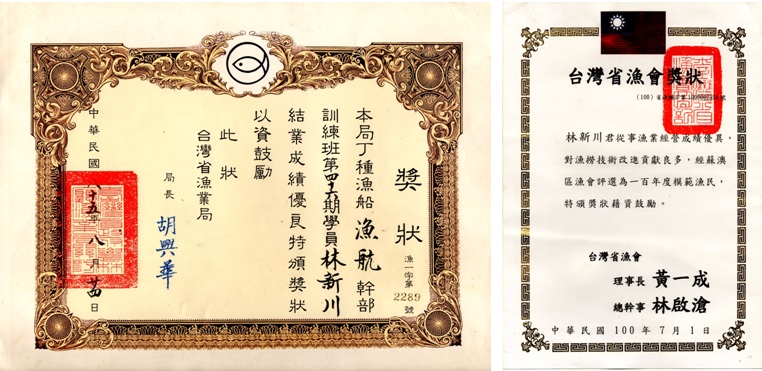 獎狀
漁一字第2289號
本局丁種漁船漁航幹部
訓練班第四十六期學員林新川
結業成績優良特頒獎狀
以資鼓勵
此狀
台灣省漁業局
局長 胡興華
中華民國八十五年八月廿四日
台灣省漁會獎狀
林新川君從事漁業經營成績優異,
對漁撈技術改進貢獻良多,經蘇澳
區漁會評選為一百年度模範漁民,
特頒獎狀藉資鼓勵。
台灣省漁會
理事長 黃一成
總幹事 林啟滄
中華民國100年7月1日